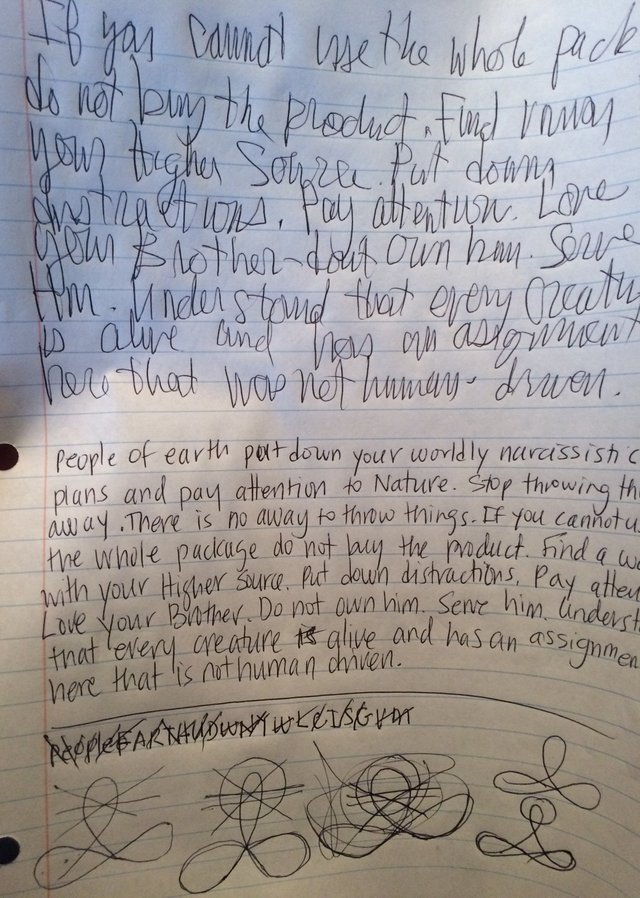 If you cannot use the whole pack
do not buy the product. Find union
your Higher Source. Put down
distractions. Pay attention. Love
your Brother - dont own him. Serve
Him. Understand that every creatu
is alive and has an assignment
here that was not human - driven.
People of earth put down your worldly narcissistic
plans and pay attention to Nature. Stop throwing thi
away. There is no away to throw things. If you cannot u
the whole package do not buy the product. Find a wa
with your Higher Source. Put down distractions. Pay atten
Love your Brother. Do not own him. Serve him. Underst
that every creature is alive and has an assignmen
here that is not human driven.